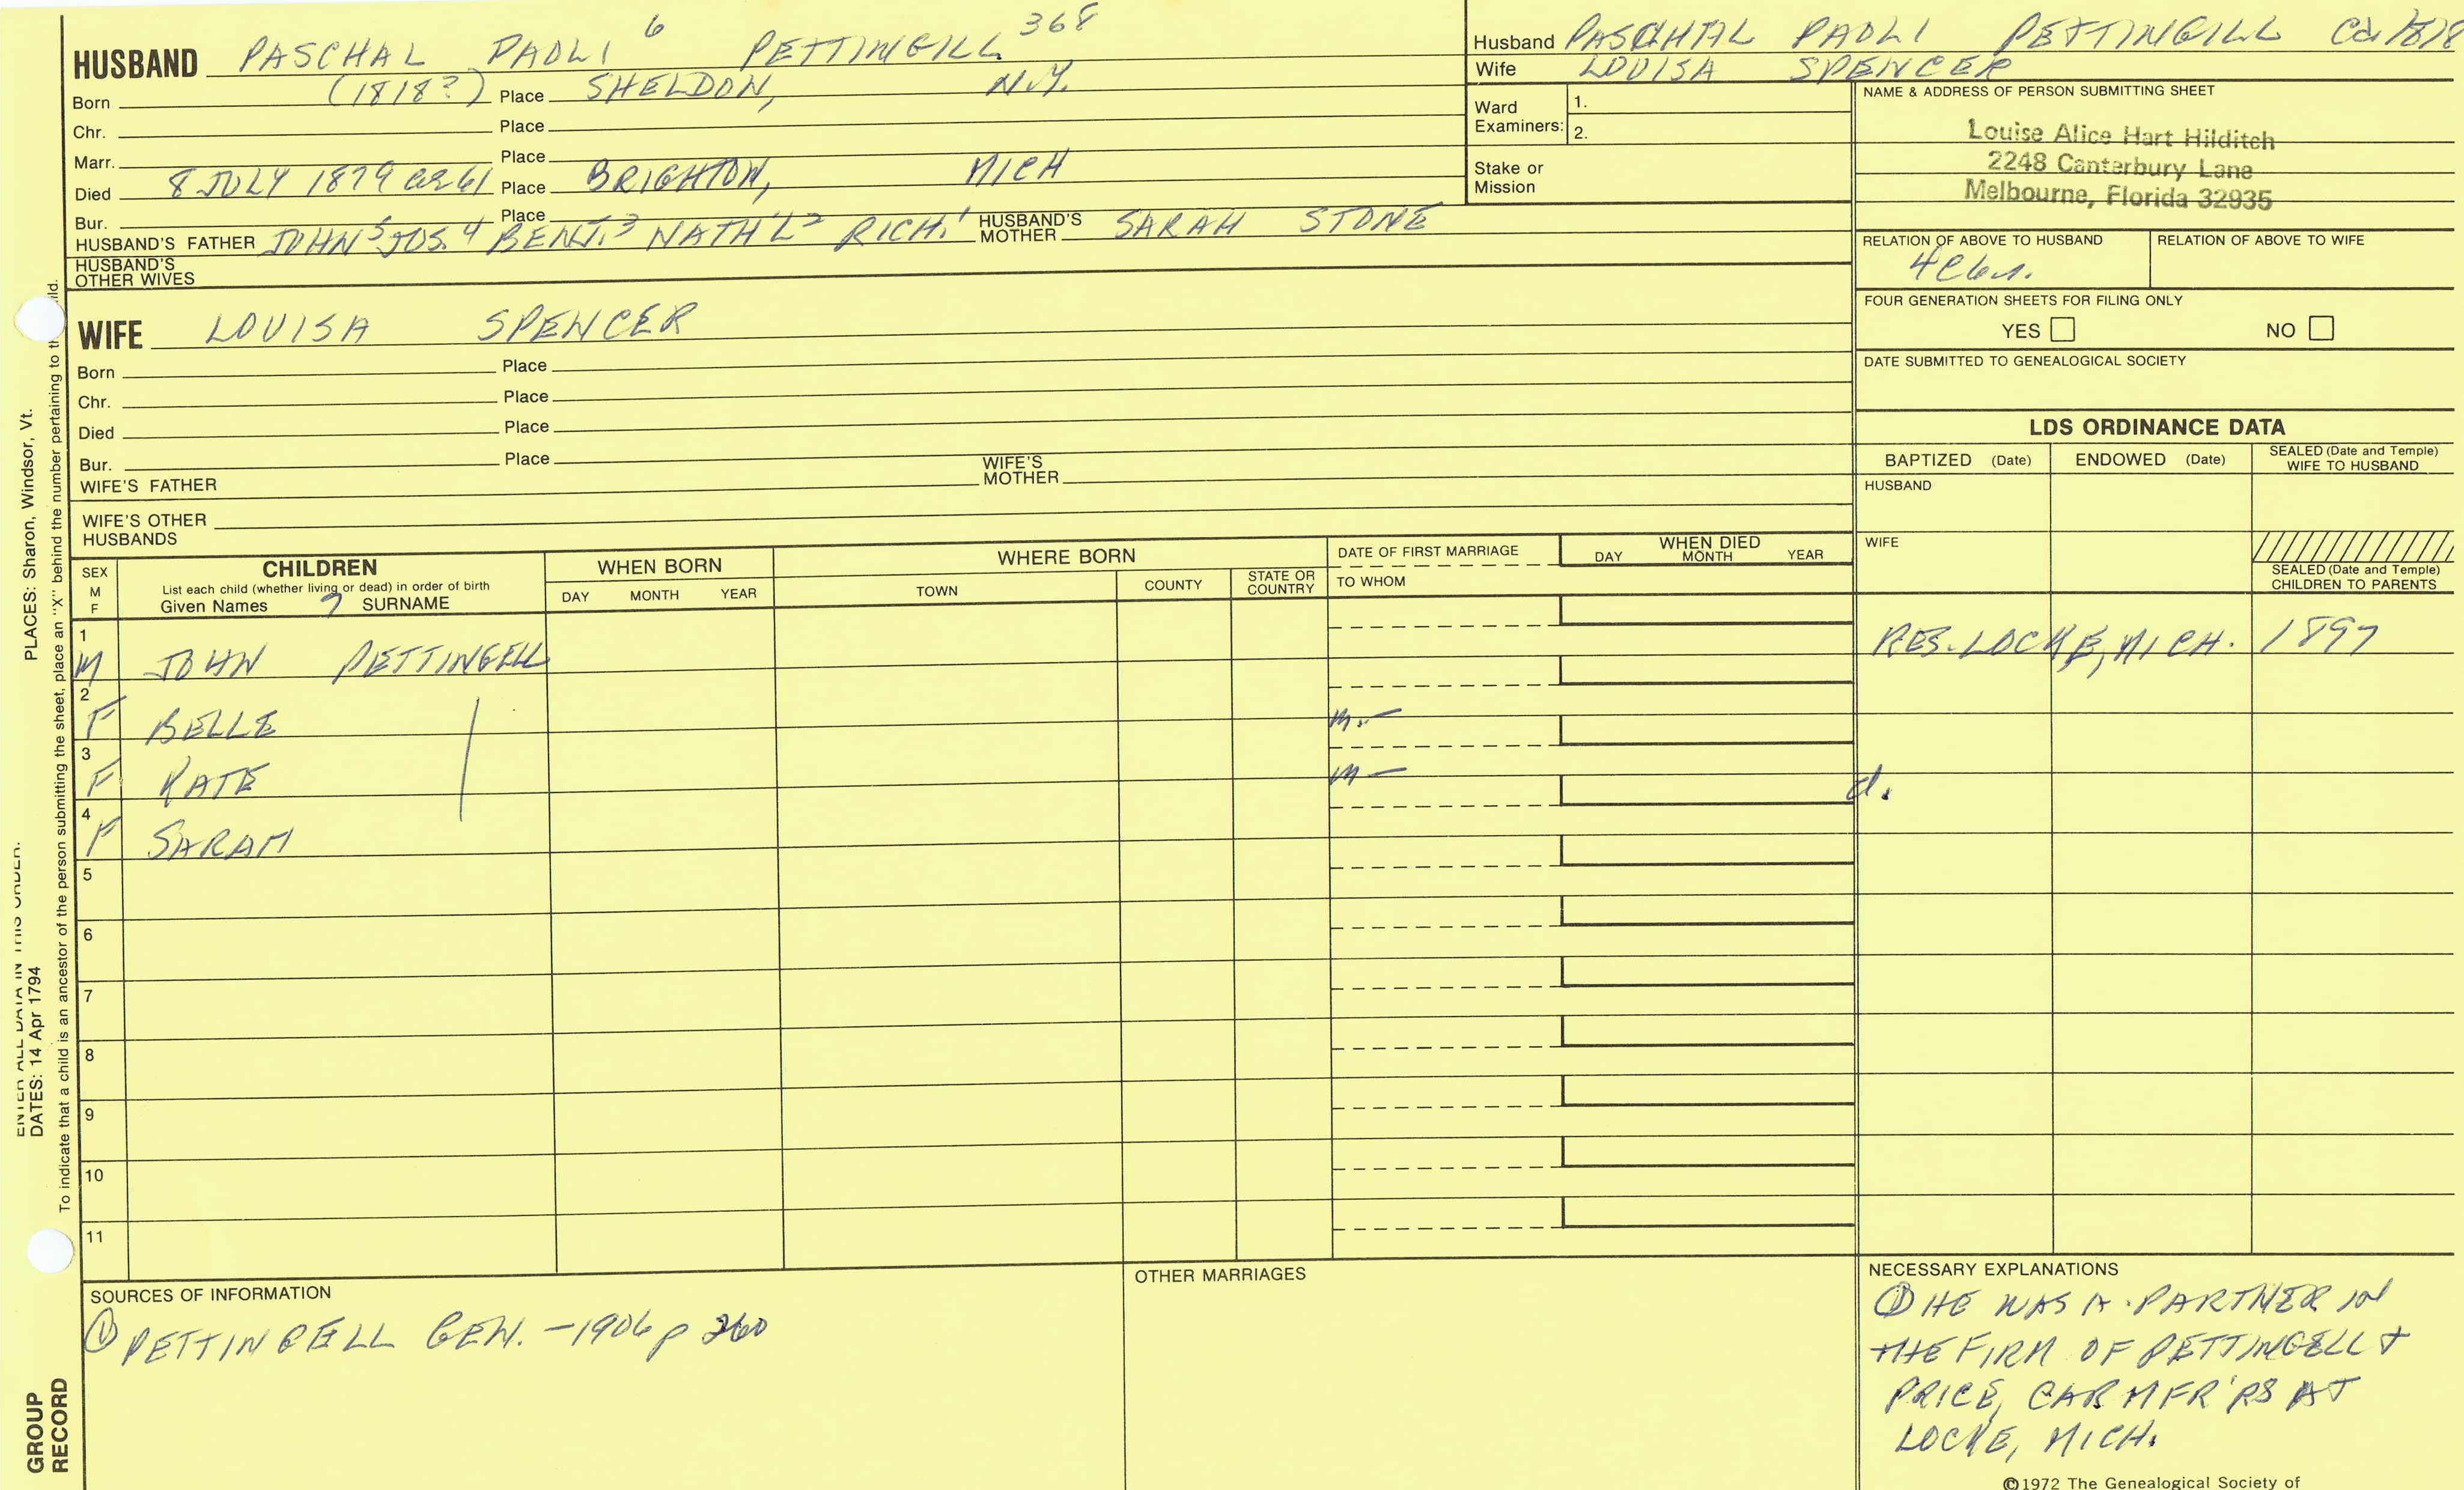 HUSBAND PASCHAL PAOLI 6 PETTINGILL 368
Born (1818?) Place SHELDON, N.Y.
Chr. Place
Marr. Place
Died 8 JULY 1879 ae 61 Place BRIGHTON, MICH
Bur. Place
HUSBAND'S FATHER JOHN 5 JOS. 4 BENJ. 3 NATH'L 2 RICH. 1 HUSBAND'S MOTHER SARAH STONE
HUSBAND'S OTHER WIVES
WIFE LOUISA SPENCER
Born Place
Chr. Place
Died Place
Bur. Place
WIFE'S FATHER WIFE'S MOTHER
WIFE'S OTHER HUSBANDS
Husband PASCHAL PAOLI PETTINGILL Ca 1818
Wife LOUISA SPENCER
Ward Examiners: 1.
2.
Stake or Mission
NAME & ADDRESS OF PERSON SUBMITTING SHEET
Louise Alice Hart Hilditch
2248 Canterbury Lane
Melbourne, Florida 32935
RELATION OF ABOVE TO HUSBAND RELATION OF ABOVE TO WIFE
FOUR GENERATION SHEETS FOR FILING ONLY
YES NO
DATE SUBMITTED TO GENEALOGICAL SOCIETY
LDS ORDINANCE DATA
BAPTIZED (Date) ENDOWED (Date) SEALED (Date and Temple) WIFE TO HUSBAND
HUSBAND
WIFE
SEALED (Date and Temple) CHILDREN TO PARENTS
SEX M F
CHILDREN
List each child (whether living or dead) in order of birth
Given Names 7 SURNAME
WHEN BORN
DAY MONTH YEAR
WHERE BORN
TOWN COUNTY STATE OR COUNTRY
DATE OF FIRST MARRIAGE
TO WHOM
WHEN DIED
DAY MONTH YEAR
1
M JOHN PETTINGELL RES. LOCKE, MICH. 1897
2
F BELLE m. —
3
F KATE m — d.
4
F SARAH
5
6
7
8
9
10
11
SOURCES OF INFORMATION
① PETTINGELL GEN. - 1906 p 260
OTHER MARRIAGES
NECESSARY EXPLANATIONS
① HE WAS A PARTNER IN
THE FIRM OF PETTINGELL &
PRICE, CAR MFR'RS AT
LOCKE, MICH.
©1972 The Genealogical Society of
PLACES: Sharon, Windsor, Vt.
ENTER ALL DATA IN THIS ORDER.
DATES: 14 Apr 1794
To indicate that a child is an ancestor of the person submitting the sheet, place an "X" behind the number pertaining to
GROUP
RECORD